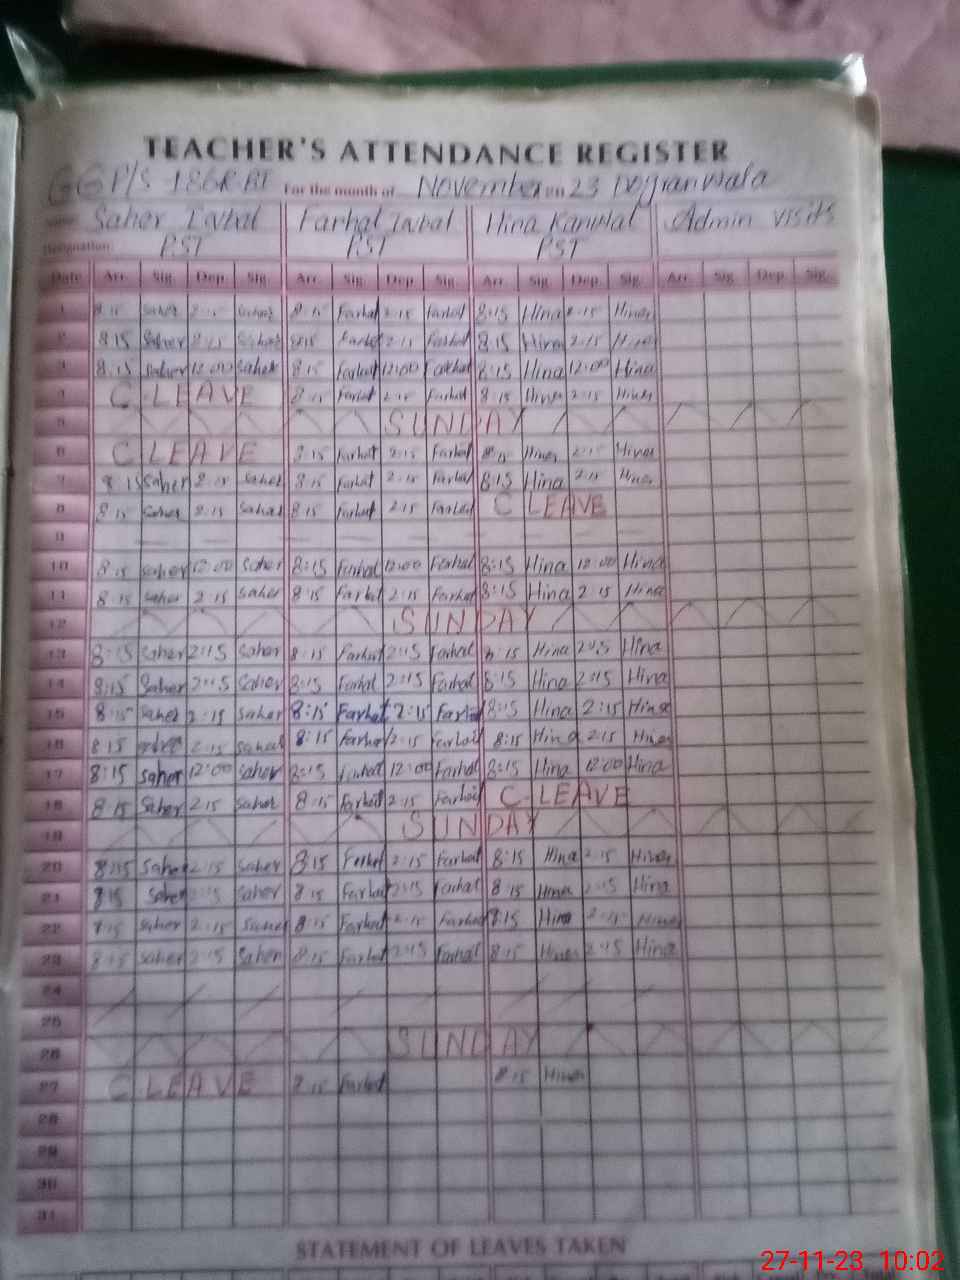 TEACHER'S ATTENDANCE REGISTER
For the month of November 23
Saher Iqbal Farhat Iqbal Hina Kanwal Admin visits
Designation: PST PST PST
Date Arr. Sig. Dep. Sig. Arr. Sig. Dep. Sig. Arr. Sig. Dep. Sig. Arr. Sig. Dep. Sig.
1 8:15 Saher 2:15 Saher 8:15 Farhat 2:15 Farhat 8:15 Hina 2:15 Hina
2 8:15 Saher 2:15 Saher 8:15 Farhat 2:15 Farhat 8:15 Hina 2:15 Hina
3 8:15 Saher 12:00 Saher 8:15 Farhat 12:00 Farhat 8:15 Hina 12:00 Hina
4 C-LEAVE 8:15 Farhat 2:15 Farhat 8:15 Hina 2:15 Hina
5 SUNDAY
6 C LEAVE 8:15 Farhat 2:15 Farhat 8:15 Hina 2:15 Hina
7 8:15 Saher 2:15 Saher 8:15 Farhat 2:15 Farhat 8:15 Hina 2:15 Hina
8 8:15 Saher 2:15 Saher 8:15 Farhat 2:15 Farhat C LEAVE
9
10 8:15 Saher 12:00 Saher 8:15 Farhat 12:00 Farhat 8:15 Hina 12:00 Hina
11 8:15 Saher 2:15 Saher 8:15 Farhat 2:15 Farhat 8:15 Hina 2:15 Hina
12 SUNDAY
13 8:15 Saher 2:15 Saher 8:15 Farhat 2:15 Farhat 8:15 Hina 2:15 Hina
14 8:15 Saher 2:15 Saher 8:15 Farhat 2:15 Farhat 8:15 Hina 2:15 Hina
15 8:15 Saher 2:15 Saher 8:15 Farhat 2:15 Farhat 8:15 Hina 2:15 Hina
16 8:15 Saher 2:15 Saher 8:15 Farhat 2:15 Farhat 8:15 Hina 2:15 Hina
17 8:15 Saher 12:00 Saher 8:15 Farhat 12:00 Farhat 8:15 Hina 12:00 Hina
18 8:15 Saher 2:15 Saher 8:15 Farhat 2:15 Farhat C-LEAVE
19 SUNDAY
20 8:15 Saher 2:15 Saher 8:15 Farhat 2:15 Farhat 8:15 Hina 2:15 Hina
21 8:15 Saher 2:15 Saher 8:15 Farhat 2:15 Farhat 8:15 Hina 2:15 Hina
22 8:15 Saher 2:15 Saher 8:15 Farhat 2:15 Farhat 8:15 Hina 2:15 Hina
23 8:15 Saher 2:15 Saher 8:15 Farhat 2:15 Farhat 8:15 Hina 2:15 Hina
24
25
26 SUNDAY
27 C LEAVE 8:15 Farhat 8:15 Hina
28
29
30
31
STATEMENT OF LEAVES TAKEN
27-11-23 10:02